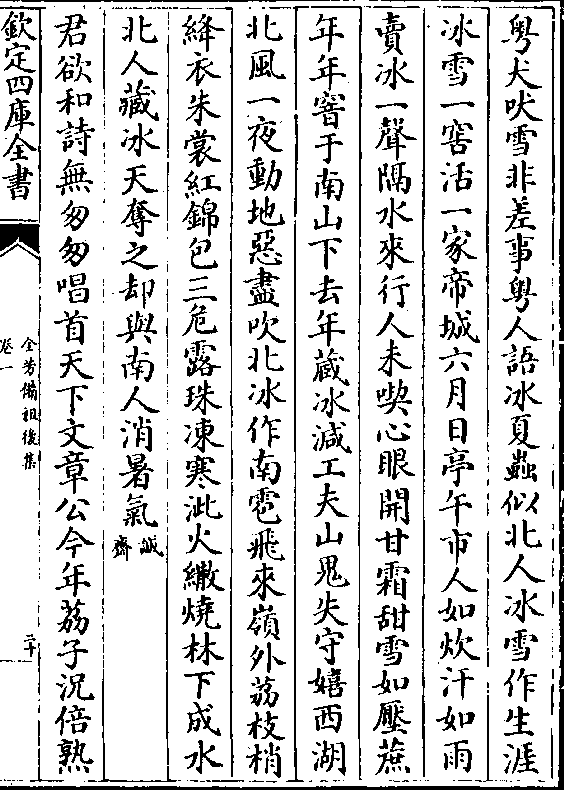 粤犬吠雪非差事粤人語冰夏蟲似北人冰雪作生涯
冰雪一窖活一家帝城六月日亭午市人如炊汗如雨
賣冰一聲隔水來行人未喫心眼開甘霜甜雪如壓蔗
年年窨于南山下去年藏冰減工夫山鬼失守嬉西湖
北風一夜動地惡盡吹北冰作南雹飛來嶺外荔枝梢
絳衣朱裳紅錦包三危露珠凍寒泚火繖燒林下成水
北人藏冰天奪之却與南人消暑氣誠齋
君欲和詩無匆匆唱首天下文章公今年荔子況倍熟
欽定四庫全書
全芳備祖後集
卷一
二十